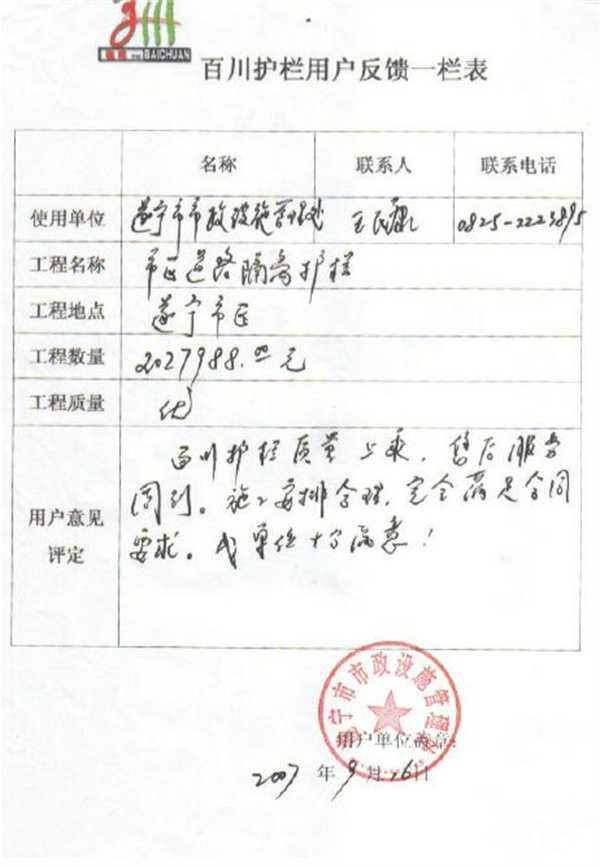 BAICHUAN
百川护栏用户反馈一栏表
名称 联系人 联系电话
使用单位 遂宁市市政设施管理处 王民康 0825-2223895
工程名称 市区道路隔离护栏
工程地点 遂宁市区
工程数量 2027988.00元
工程质量 优
百川护栏质量上乘，售后服务
周到。施工安排合理，完全满足合同
用户意见
要求。我单位十分满意！
评定
遂宁市市政设施管理处
用户单位盖章：
2007年9月26日